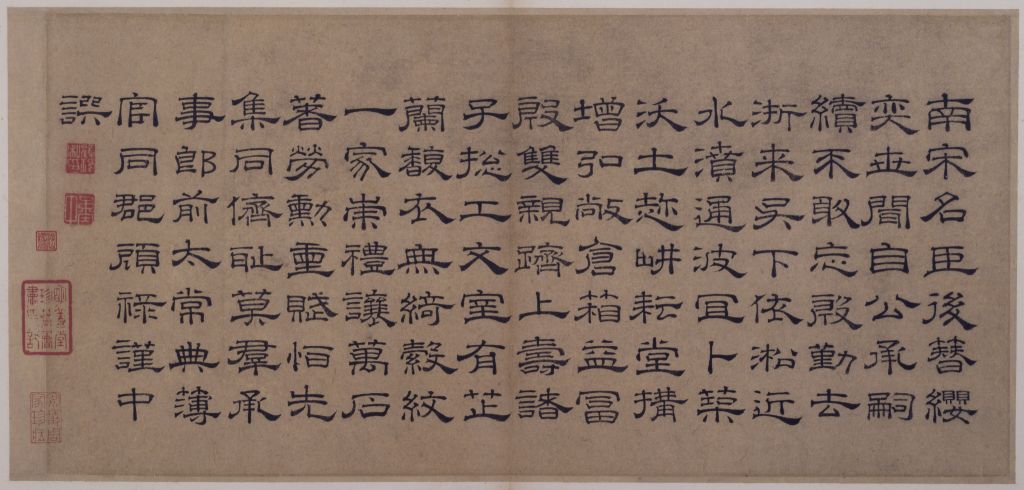 南宋名臣後簪纓
奕世間自公承嗣
續不敢忘殷勤去
浙来吴下依淞近
水濆通波冝卜築
沃土趂畊耘堂搆
增弘敞倉箱益冨
殷雙親躋上壽諸
子総工文室有芷
蘭馥衣無綺縠紋
一家崇禮讓萬石
著勞勳重賦怕先
集同儕耻莫羣承
事郎前太常典簿
官同郡顧祿謹中
譔